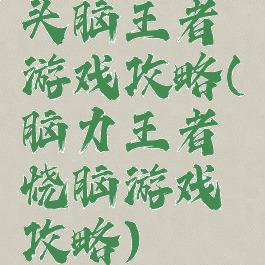 头脑王者
游戏攻略(
脑力王者
烧脑游戏
攻略)